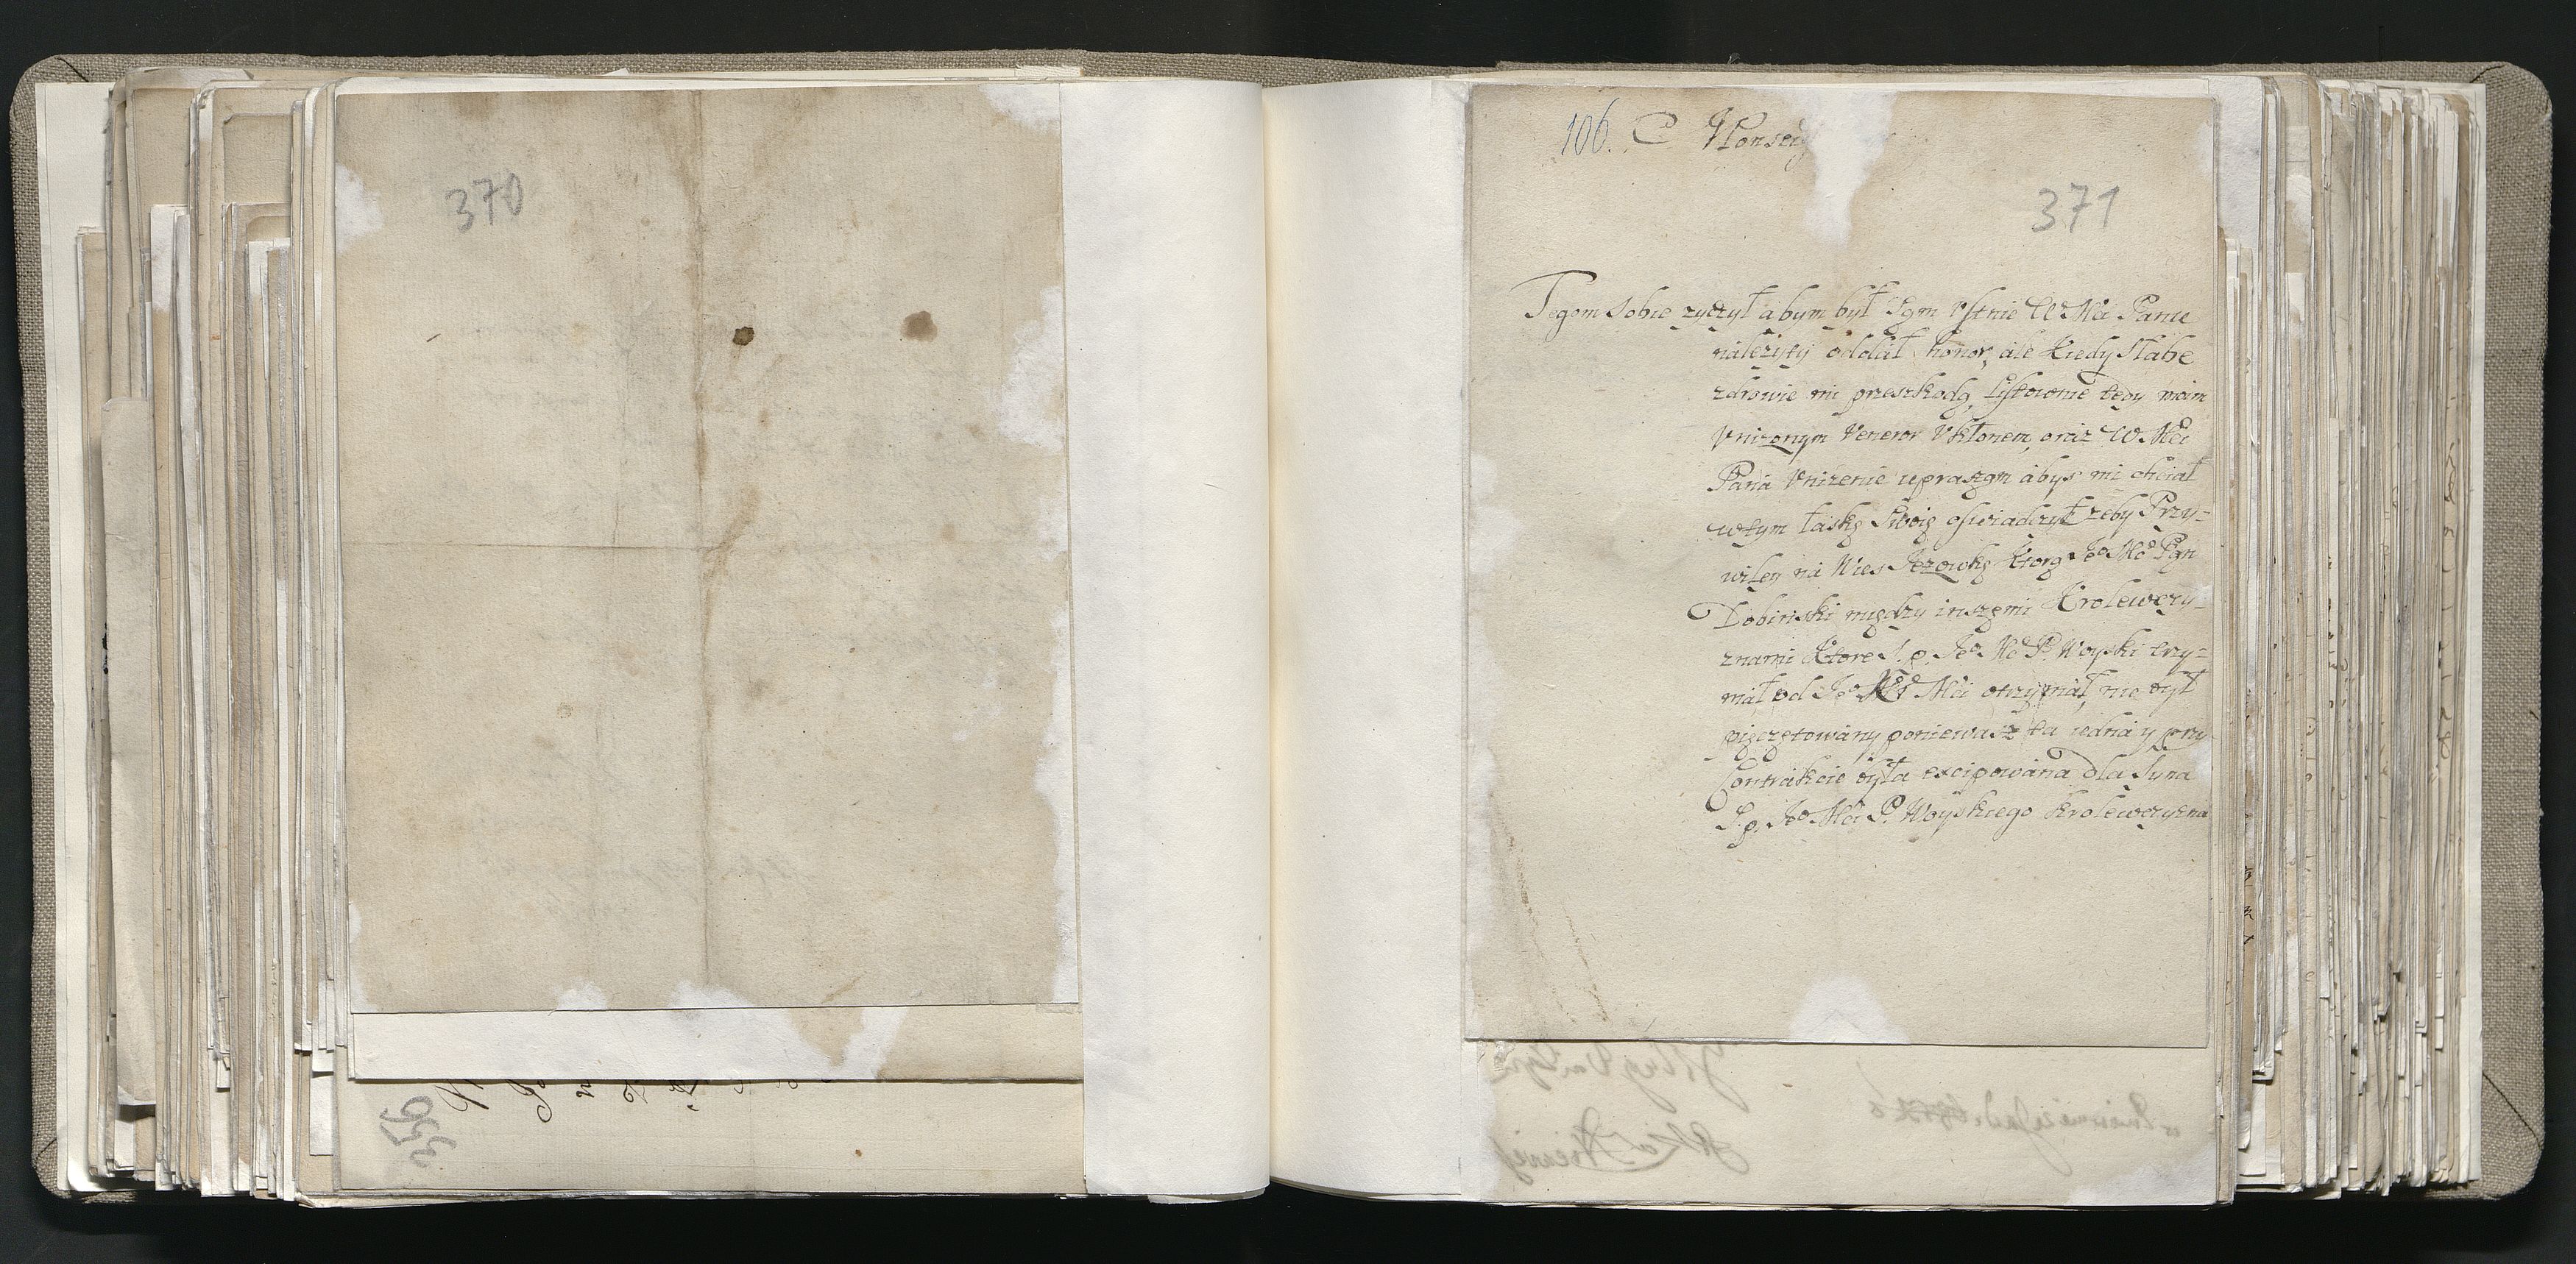 370
350
106. C Monsei
371
Tegom sobie zyczył abym był sąm Vstnie W Mći Panu
nalezyty oddał honor, ale kiedy słabe
zdrowie mi przeszkodą, listownie tedy moim
Vnizonym Veneror Vkłonem, oraz W. Mći
Pana Vnizenie upraszam abys mi chciał
wtym łaskę swoię oswiadczyć zeby Przy-
wiley na Wies Jezowkę ktorą Jeo Mć Pan
Dobinski między inszęmi Krolewczy-
znami ktore S. p. Jeo Mć P. Woyski trzy-
mał od Jeo Kr Mći otrzymał, nie był
pięczętowany poniewasz ta iedna y przy
Contrakcie była excipowana dla Syna
S. p. Jeo Mći P. Woyskiego krolewczyzna